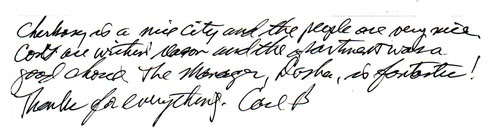 Cherkasy is a nice city and the people are very nice.
Costs are within reason and the apartment was a
good choice. The manager, Dasha, is fantastic!
Thanks for everything. Carl B